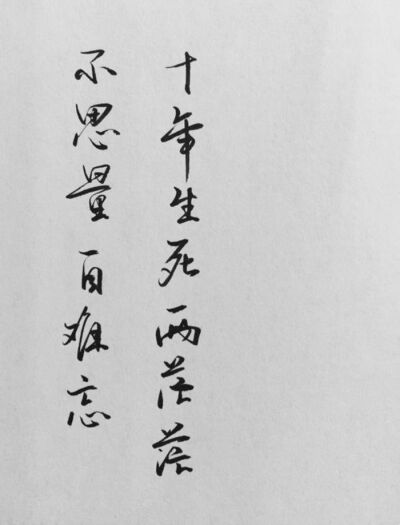 十年生死两茫茫
不思量自难忘